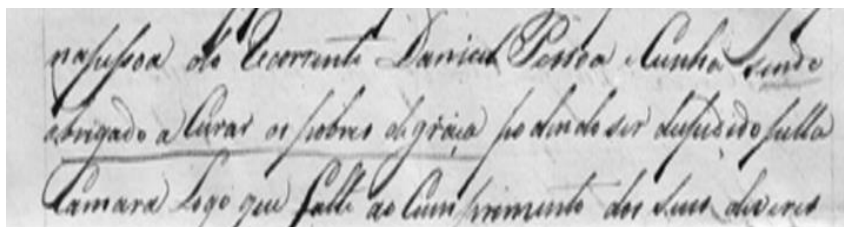 na pessoa do Recorrente Daniel Pessoa e Cunha sendo
obrigado a Curar os pobres de graça podendo ser despedido pella
Camara Logo que falte ao Cumprimento dos seus deveres